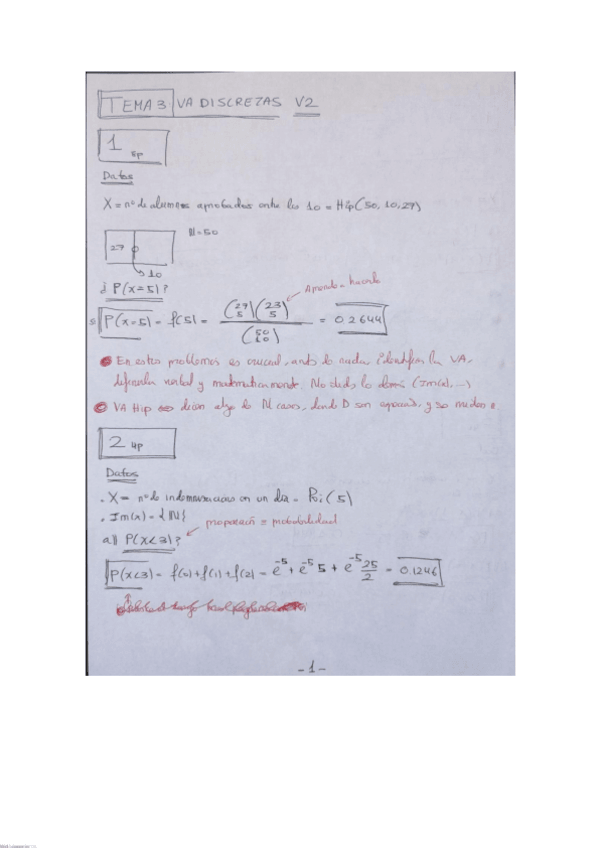 TEMA 3 VA DISCRETAS V2
1 5p
Datos
X = nº de alumnos aprobados entre los 10 = Hip(50, 10, 27)
27 N=50
10
¿ P(x=5)?
Aprende a hacerlo
P(x=5) = f(5) = (27 5)(23 5) / (50 10) = 0.2644
En estos problemas es crucial, antes de nada, identificar la VA,
definirla verbal y matemáticamente. No olvides lo demás (Im(x), ...)
VA Hip dicen algo de N casos, donde D son
2 4p
Datos
. X = nº de indemnizaciones en un día = Poi(5)
. Im(x) = {IN}
proporción = probabilidad
a)) P(x<3)?
P(x<3) = f(0)+f(1)+f(2) = e^-5 + e^-5 5 + e^-5 25/2 = 0.1246
-1-